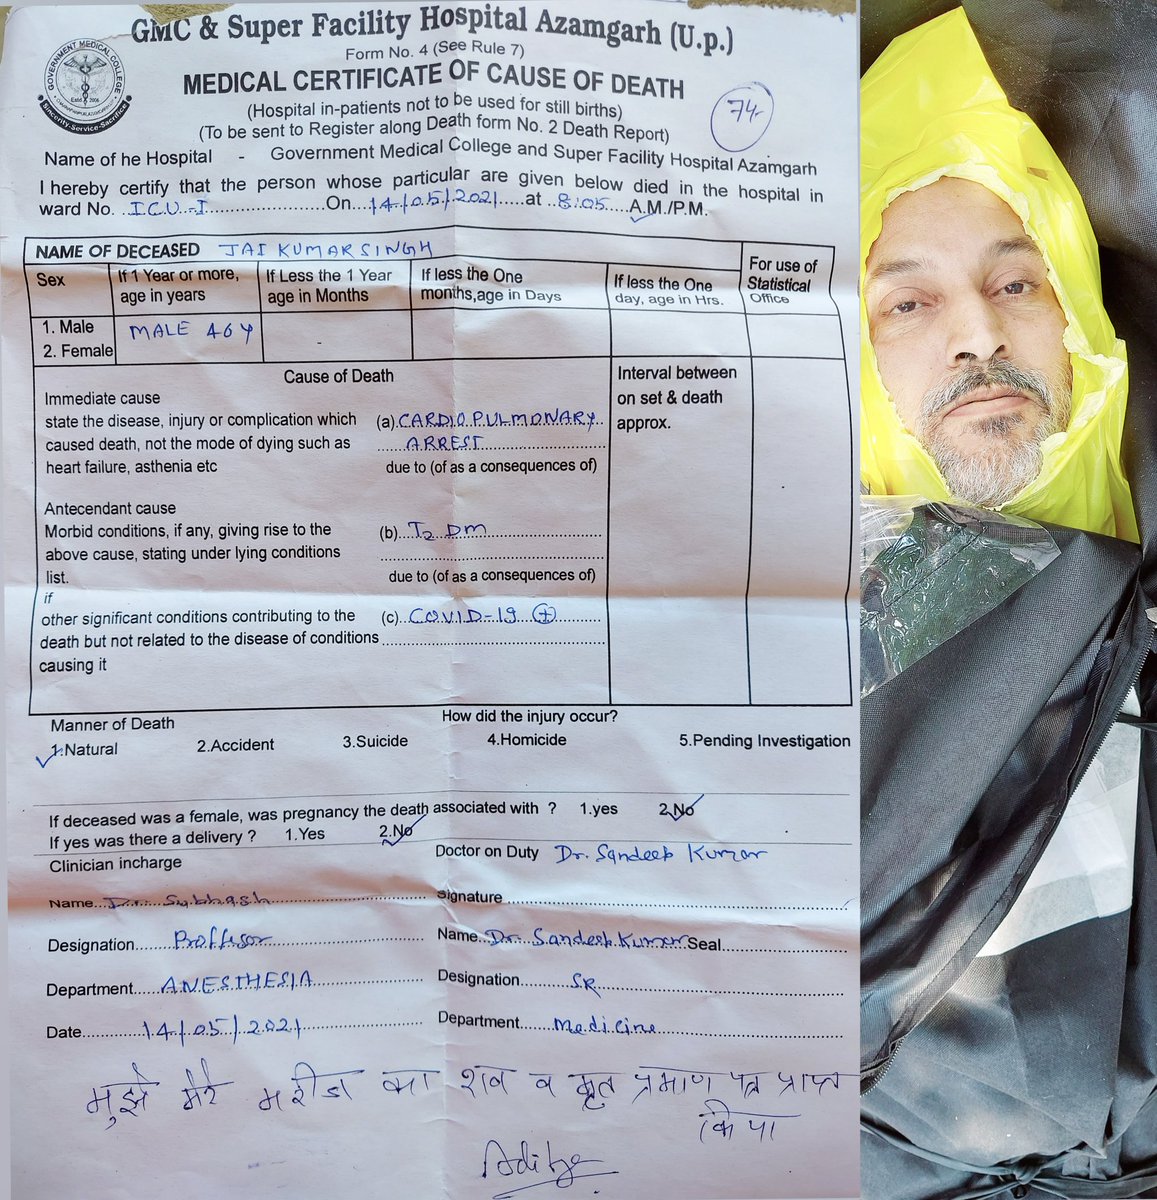 GMC & Super Facility Hospital Azamgarh (U.p.)
Form No. 4 (See Rule 7)
MEDICAL CERTIFICATE OF CAUSE OF DEATH
(Hospital in-patients not to be used for still births)
(To be sent to Register along Death form No. 2 Death Report)
74
GOVERNMENT MEDICAL COLLEGE
Sincerity-Service-Sacrifice
Name of he Hospital - Government Medical College and Super Facility Hospital Azamgarh
I hereby certify that the person whose particular are given below died in the hospital in
ward No. I.C.U.-I On 14/05/2021 at 8:05 A.M./P.M.
NAME OF DECEASED JAI KUMAR SINGH
For use of Statistical Office
Sex
If 1 Year or more, age in years
If Less the 1 Year age in Months
If less the One months,age in Days
If less the One day, age in Hrs.
1. Male
2. Female
MALE 46Y
-
Cause of Death
Interval between on set & death approx.
Immediate cause
state the disease, injury or complication which (a) CARDIO PULMONARY
caused death, not the mode of dying such as ARREST
heart failure, asthenia etc due to (of as a consequences of)
Antecendant cause
Morbid conditions, if any, giving rise to the (b) T2 DM
above cause, stating under lying conditions
list. due to (of as a consequences of)
if
other significant conditions contributing to the (c) COVID-19 (+)
death but not related to the disease of conditions
causing it
Manner of Death How did the injury occur?
1.Natural 2.Accident 3.Suicide 4.Homicide 5.Pending Investigation
If deceased was a female, was pregnancy the death associated with ? 1.yes 2.No
If yes was there a delivery ? 1.Yes 2.No
Clinician incharge Doctor on Duty Dr. Sandeep Kumar
Name Dr. Subhash Signature
Designation Proffesor Name Dr. Sandeep Kumar Seal
Department ANESTHESIA Designation SR
Date 14/05/2021 Department Medicine
मुझे मेरे मरीज का शव व मृत प्रमाण पत्र प्राप्त
किया